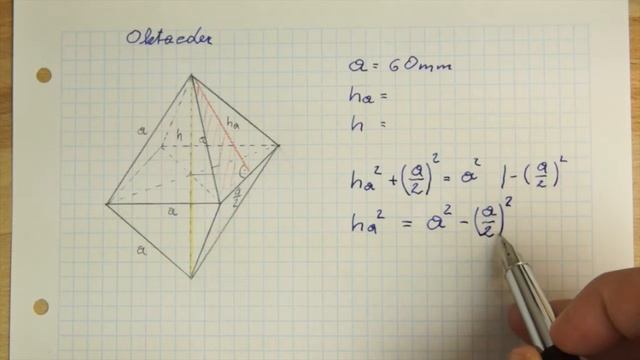 Oktaeder
a = 60mm
ha =
h =
ha² + (a/2)² = a² | - (a/2)²
ha² = a² - (a/2)²
a
h
a
ha
a/2
a
a